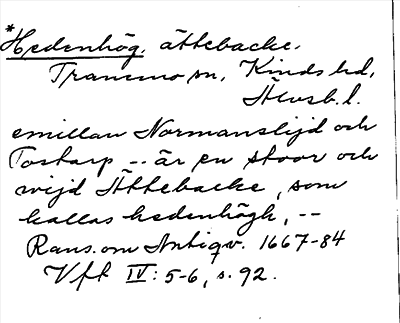 *Hedenhög, ättebacke.
Tranemo sn, Kinds hd,
Älvsb. l.
emillan Normanslijd och
Tostarp -- är en stoor och
wijd Ättebacke, som
kallas hedenhögh, --
Rans. om Antiqv. 1667-84
Vft IV: 5-6, s. 92.